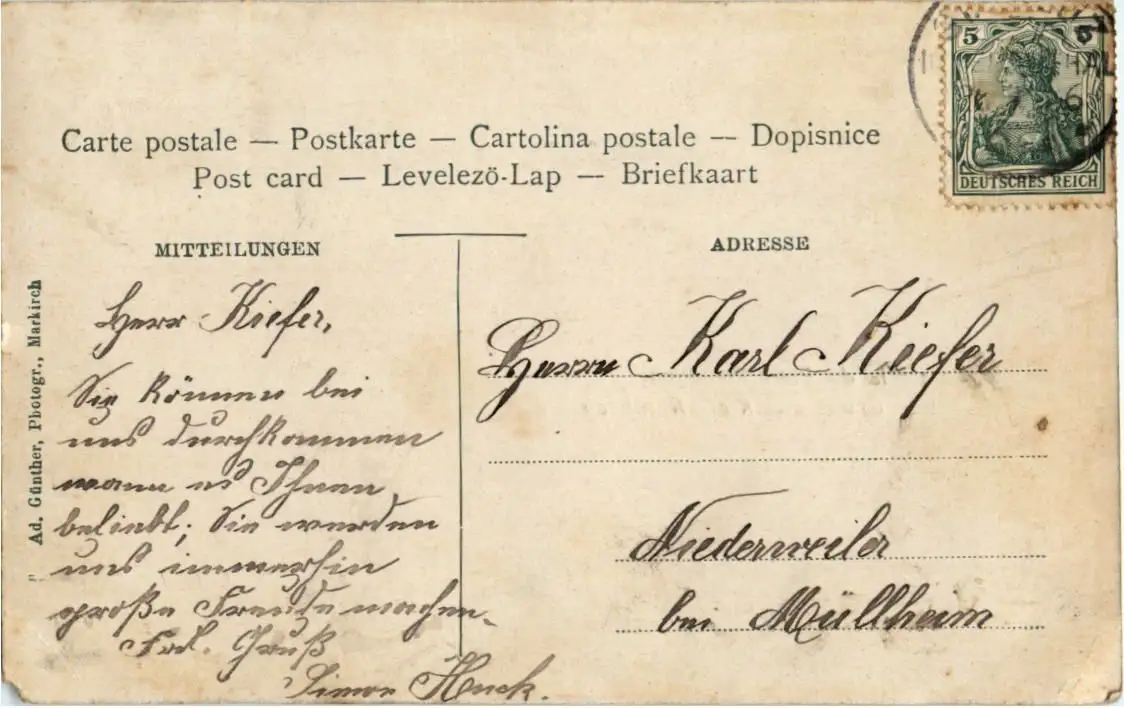 Carte postale — Postkarte — Cartolina postale — Dopisnice
Post card — Levelezö-Lap — Briefkaart
5 5
DEUTSCHES REICH
MITTEILUNGEN
Herr Kiefer,
Sie können bei
uns durchkommen
wann es Ihnen
beliebt; Sie werden
uns immerhin
große Freude machen.
Frdl. Gruß
Simon Huck.
Ad. Günther, Photogr., Markirch
ADRESSE
Herrn Karl Kiefer
Niederweiler
bei Müllheim